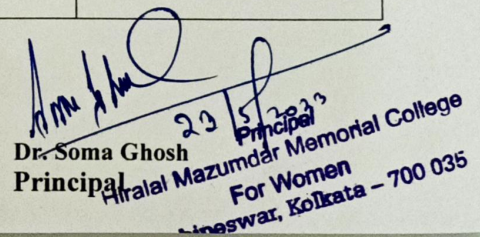 Soma Ghosh
23/5/2023
Dr. Soma Ghosh
Principal
Principal
Hiralal Mazumdar Memorial College
For Women
Kolkata - 700 035